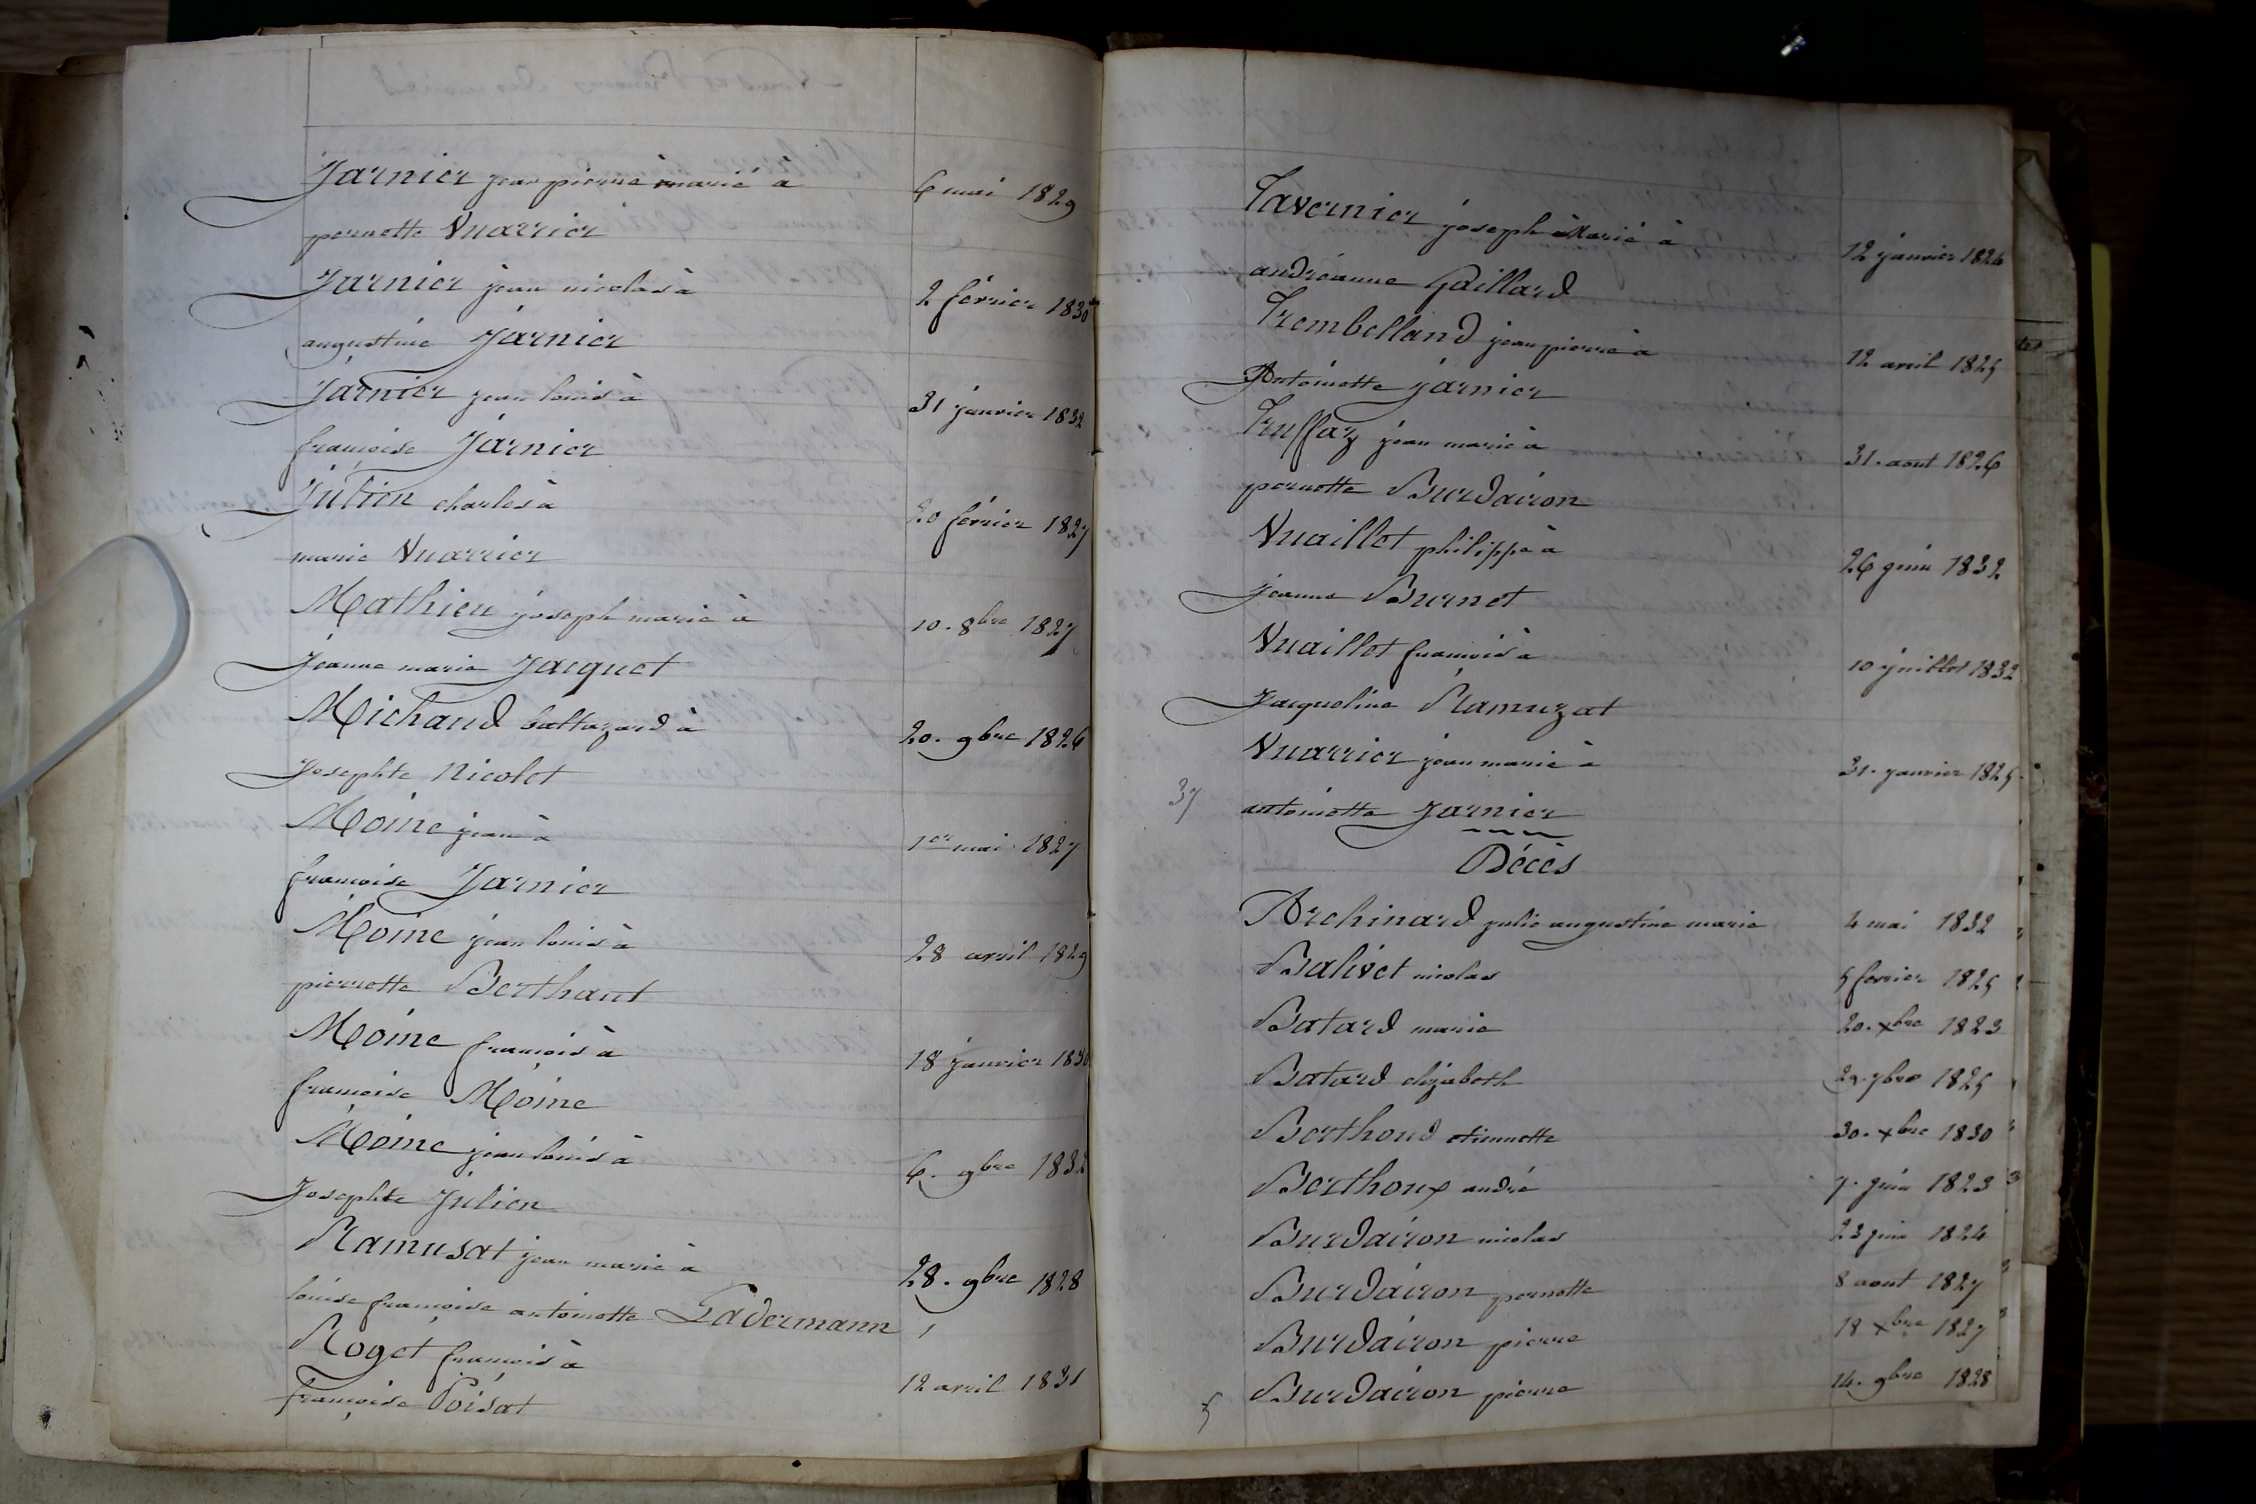 Jarnier jean pierre marié à 6 mai 1829
pernette Vuarrier
Jarnier jean nicolas à 2 février 1830
augustine Jarnier
Jarnier jean louis à 31 janvier 1832
françoise Jarnier
Julien charles à 20 février 1827
marie Vuarrier
Mathieu joseph marie à 10. 8bre 1827
Jeanne marie Jacquet
Michaud baltazard à 20. 9bre 1826
Josephte Nicolet
Moine jean à 1er mai 1827
françoise Jarnier
Moine jean louis à 28 avril 1829
pierrette Berthaut
Moine françois à 18 janvier 1830
françoise Moine
Moine jean louis à 6. 9bre 1832
Josephte Julien
Ramusat jean marie à 28. 9bre 1828
louise françoise antoinette Ladermann
Roget françois à 12 avril 1831
françoise Poisat
Tavernier joseph Marié à 12 janvier 1826
andréanne Gaillard
Trembelland jean pierre à 12 avril 1825
Antoinette Jarnier
Truffaz jean marie à 31. aout 1826
pernette Burdairon
Vuaillet philippe à 26 juin 1832
jeanne Burnet
Vuaillet françois à 10 juillet 1832
Jacqueline Ramuzat
Vuarrier jean marie à 31. janvier 1825
37 antoinette Jarnier
Décès
Archinard julie augustine marie 4 mai 1832
Balivet nicolas 5 fevrier 1825
Batard marie 20. xbre 1823
Batard elizabeth 29. 7bre 1825
Berthoud etiennette 30. xbre 1830
Berthoux andré 7. juin 1823
Burdairon nicolas 22 juin 1824
Burdairon pernette 8 aout 1827
Burdairon pierre 18 xbre 1827
5 Burdairon pierre 14. 9bre 1828